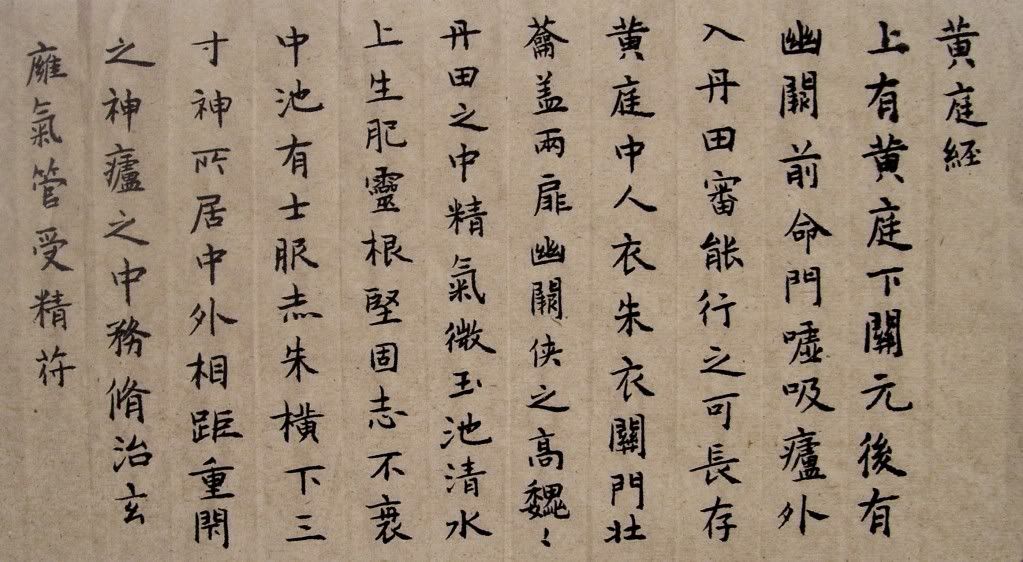 黄庭経
上有黄庭下關元後有
幽關前命門噓吸廬外
入丹田審能行之可長存
黄庭中人衣朱衣關門壯
蘥盖兩扉幽關侠之高魏〻
丹田之中精氣微玉池清水
上生肥靈根堅固志不衰
中池有士服赤朱横下三
寸神所居中外相距重閇
之神廬之中務脩治玄
廱氣管受精苻